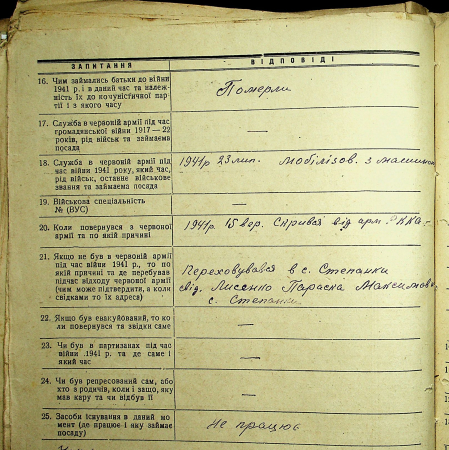 ЗАПИТАННЯ ВІДПОВІДІ
16. Чим займались батьки до війни
1941 р. і в даний час та належ-
ність їх до комуністичної пар-
тії і з якого часу
Померли
17. Служба в червоній армії під час
громадянської війни 1917—22
років, рід військ та займаєма
посада
—
18. Служба в червоній армії під
час війни 1941 року, який час,
рід військ, останнє військове
звання та займаєма посада
1941р 23 лип. мобілізов. з машиною
19. Військова спеціальність
№ (ВУС)
—
20. Коли повернувся з червоної
армії та по якій причині
1941р. 15 вер. Скрився від арм. РККА.
21. Якщо не був в червоній армії
під час війни 1941 р., то по
якій причині та де перебував
підчас відходу червоної армії
(чим може підтвердити, а коли
свідками то їх адреса)
Переховувався в с. Степанки
свід. Лисенко Параска Максимовна
с. Степанки.
22. Якщо був евакуйований, то ко-
ли повернувся та звідки саме
—
23. Чи був в партизанах під час
війни 1941 р. та де саме і
який час
—
24. Чи був репресований сам, або
хто з родичів, коли і защо, яку
мав кару та чи відбув її
—
25. Засоби існування в даний мо-
мент (де працює і яку займає
посаду)
Не працює